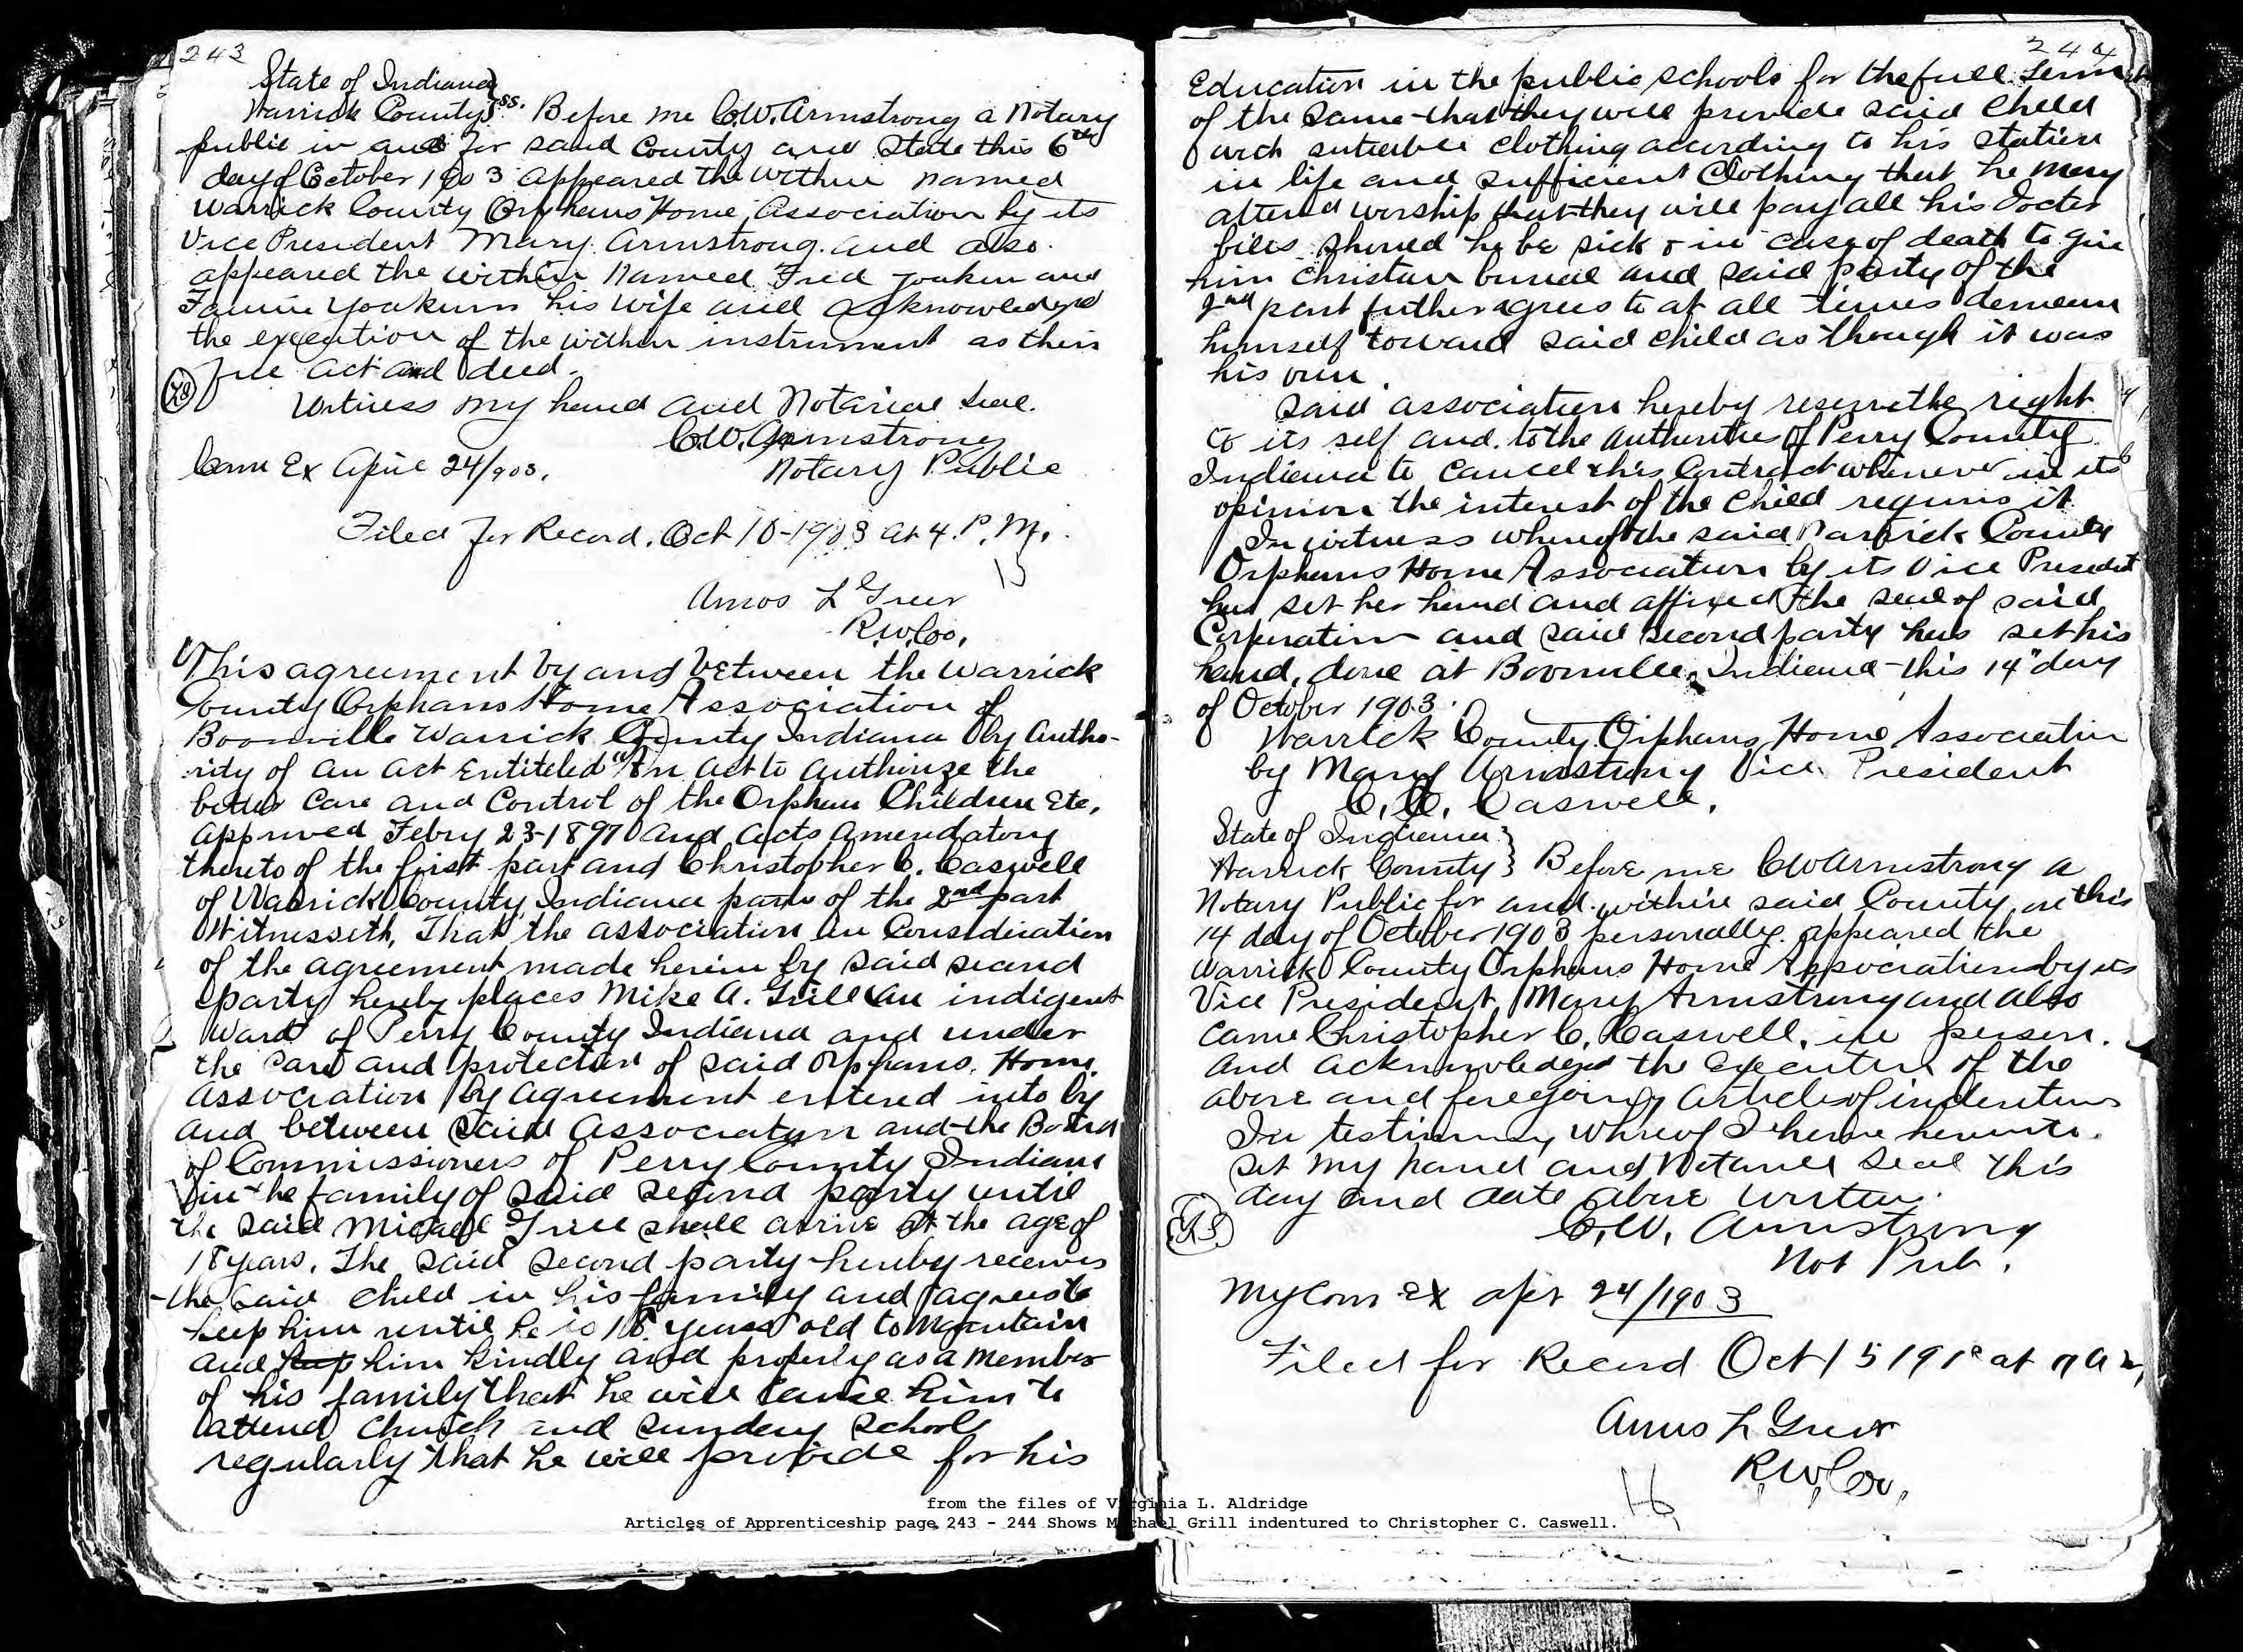 243
State of Indiana }
Warrick County } ss. Before me C.W. Armstrong a Notary
public in and for said County and State this 6th
day of October 1903 appeared the within named
Warrick County Orphans Home Association by its
Vice President Mary Armstrong. and also
appeared the within Named Fred Yoakum and
Fannie Yoakum his wife and acknowledged
the execution of the within instrument as their
free act and deed.
Witness my hand and Notarial Seal.
C.W. Armstrong
Com Ex April 24/903. Notary Public
Filed for Record. Oct 10-1903 at 4. P.M.
15
Amos L Greer
R.W.Co.
This agreement by and between the Warrick
County Orphans Home Association of
Boonville Warrick County Indiana by Autho-
rity of an act Entiteled "An act to authorize the
better Care and Control of the Orphan Children Etc,
approved Febry 23-1897 and acts amendatory
thereto of the first part and Christopher C. Caswell
of Warrick County Indiana party of the 2nd part
Witnesseth, That the association in Consideration
of the agreement made herein by said second
party hereby places Mike A. Grill an indigent
Ward of Perry County Indiana and under
the care and protection of said Orphans Home
Association by agreement entered into by
and between said Association and the Board
of Commissioners of Perry County Indiana
in the family of said second party until
the said Michael Grill shall arrive at the age of
18 years. The said second party hereby receives
the said child in his family and agrees to
keep him until he is 18 years old to maintain
and keep him kindly and properly as a member
of his family that he will cause him to
attend Church and Sunday School
regularly that he will provide for his
244
Education in the public schools for the full term
of the same that they will provide said child
with suitable clothing according to his station
in life and sufficient Clothing that he may
attend worship that they will pay all his Doctor
bills should he be sick & in case of death to give
him christian burial and said party of the
2nd part futher agrees to at all times demean
himself toward said child as though it was
his own.
Said association hereby reserve the right
to its self and to the authorities of Perry County
Indiana to cancel this Contract whenever in its
opinion the interest of the child requires it
In witness whereof the said Warrick County
Orphans Home Association by its Vice President
has set her hand and affixed the seal of said
Corporation and said second party has set his
hand, done at Boonville, Indiana this 14" day
of October 1903.
Warrick County Orphans Home Association
by Mary Armstrong Vice President
C. C. Caswell.
State of Indiana }
Warrick County } Before me CW Armstrong a
Notary Public for and within said County, on this
14 day of October 1903 personally appeared the
Warrick County Orphans Home Association by its
Vice President, Mary Armstrong and also
came Christopher C. Caswell, in person.
and acknowledged the Execution of the
above and foregoing articles of indenture
In testimony whereof I have hereunto
set my hand and Notarial Seal this
day and date above written.
C.W. Armstrong
Not Pub.
My Com Ex apr 24/1903
Filed for Record Oct 15 at
Amos L Greer
R.W.Co.
16
from the files of Virginia L. Aldridge
Articles of Apprenticeship page 243 - 244 Shows Michael Grill indentured to Christopher C. Caswell.